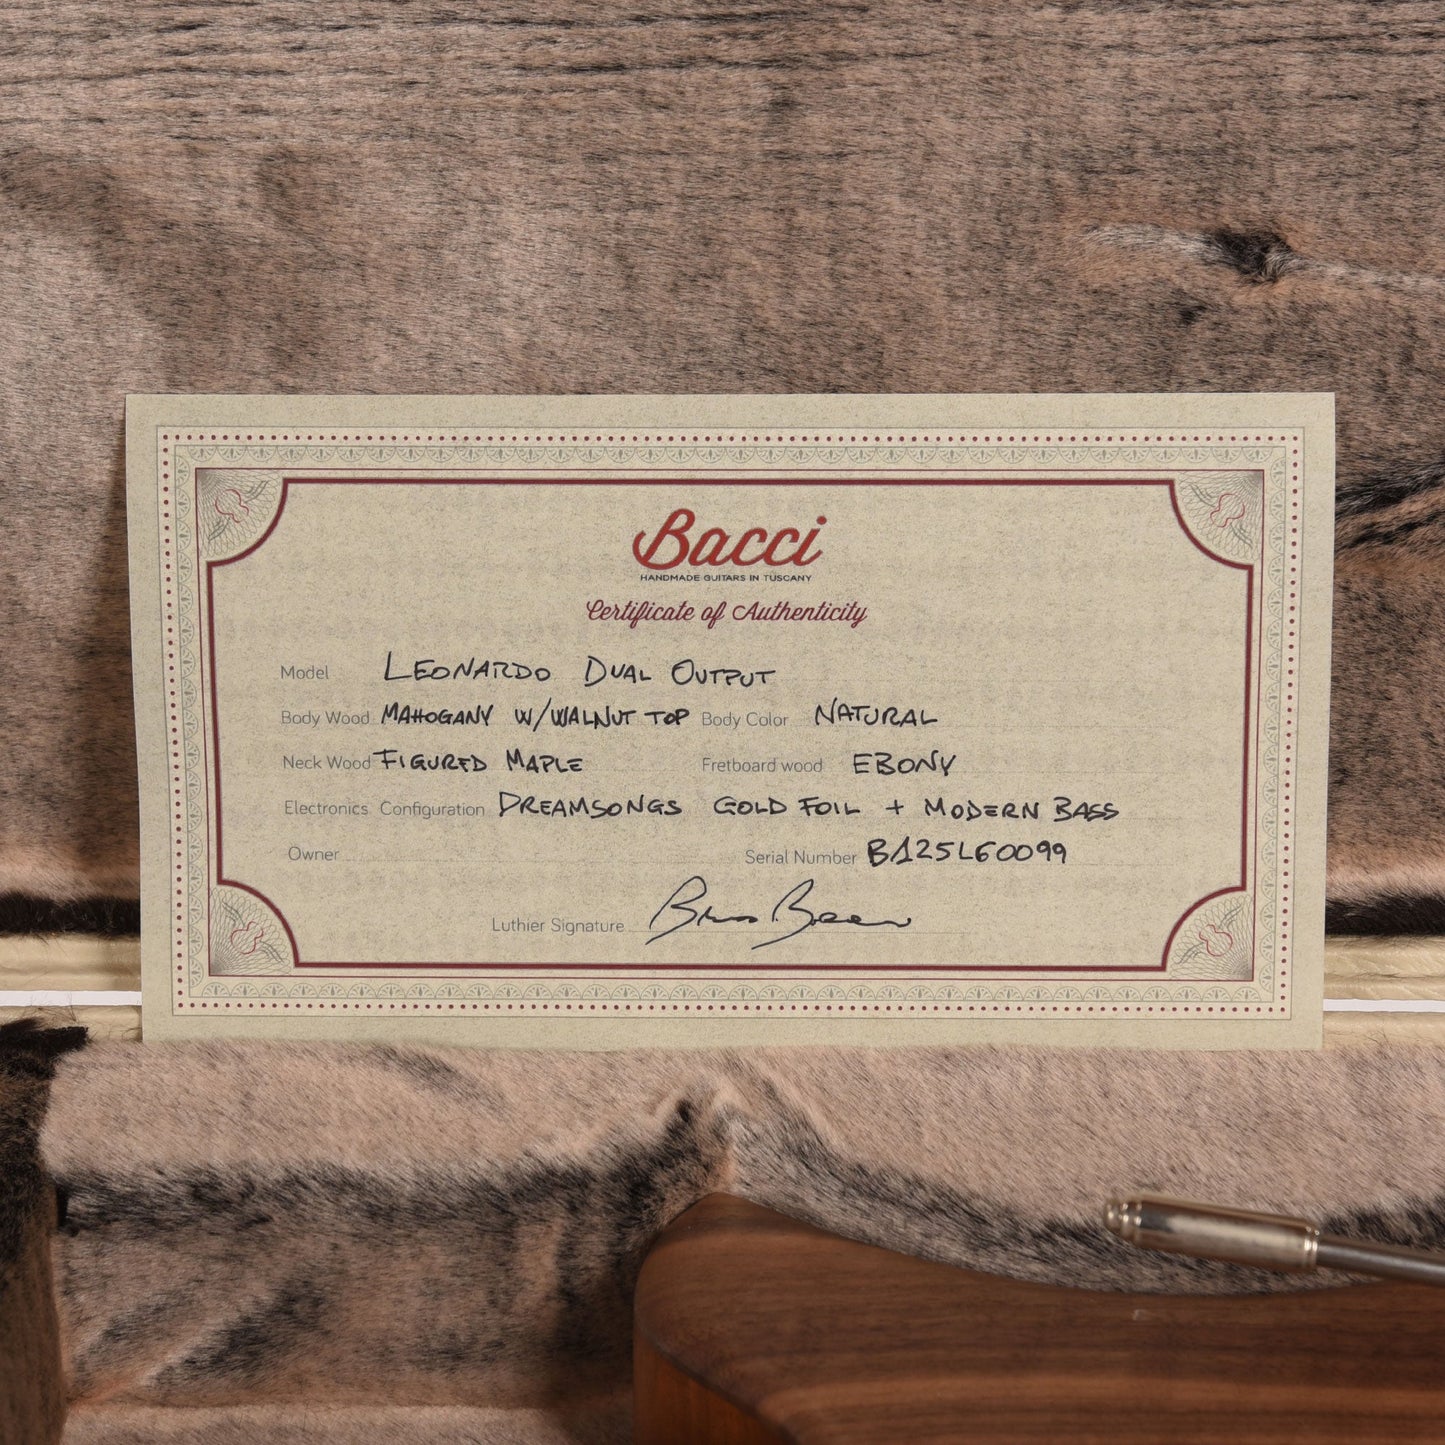 Bacci
HANDMADE GUITARS IN TUSCANY
Certificate of Authenticity
Model LEONARDO DUAL OUTPUT
Body Wood MAHOGANY W/WALNUT TOP Body Color NATURAL
Neck Wood FIGURED MAPLE Fretboard wood EBONY
Electronics Configuration DREAMSONGS GOLD FOIL + MODERN BASS
Owner Serial Number BA125L60099
Luthier Signature